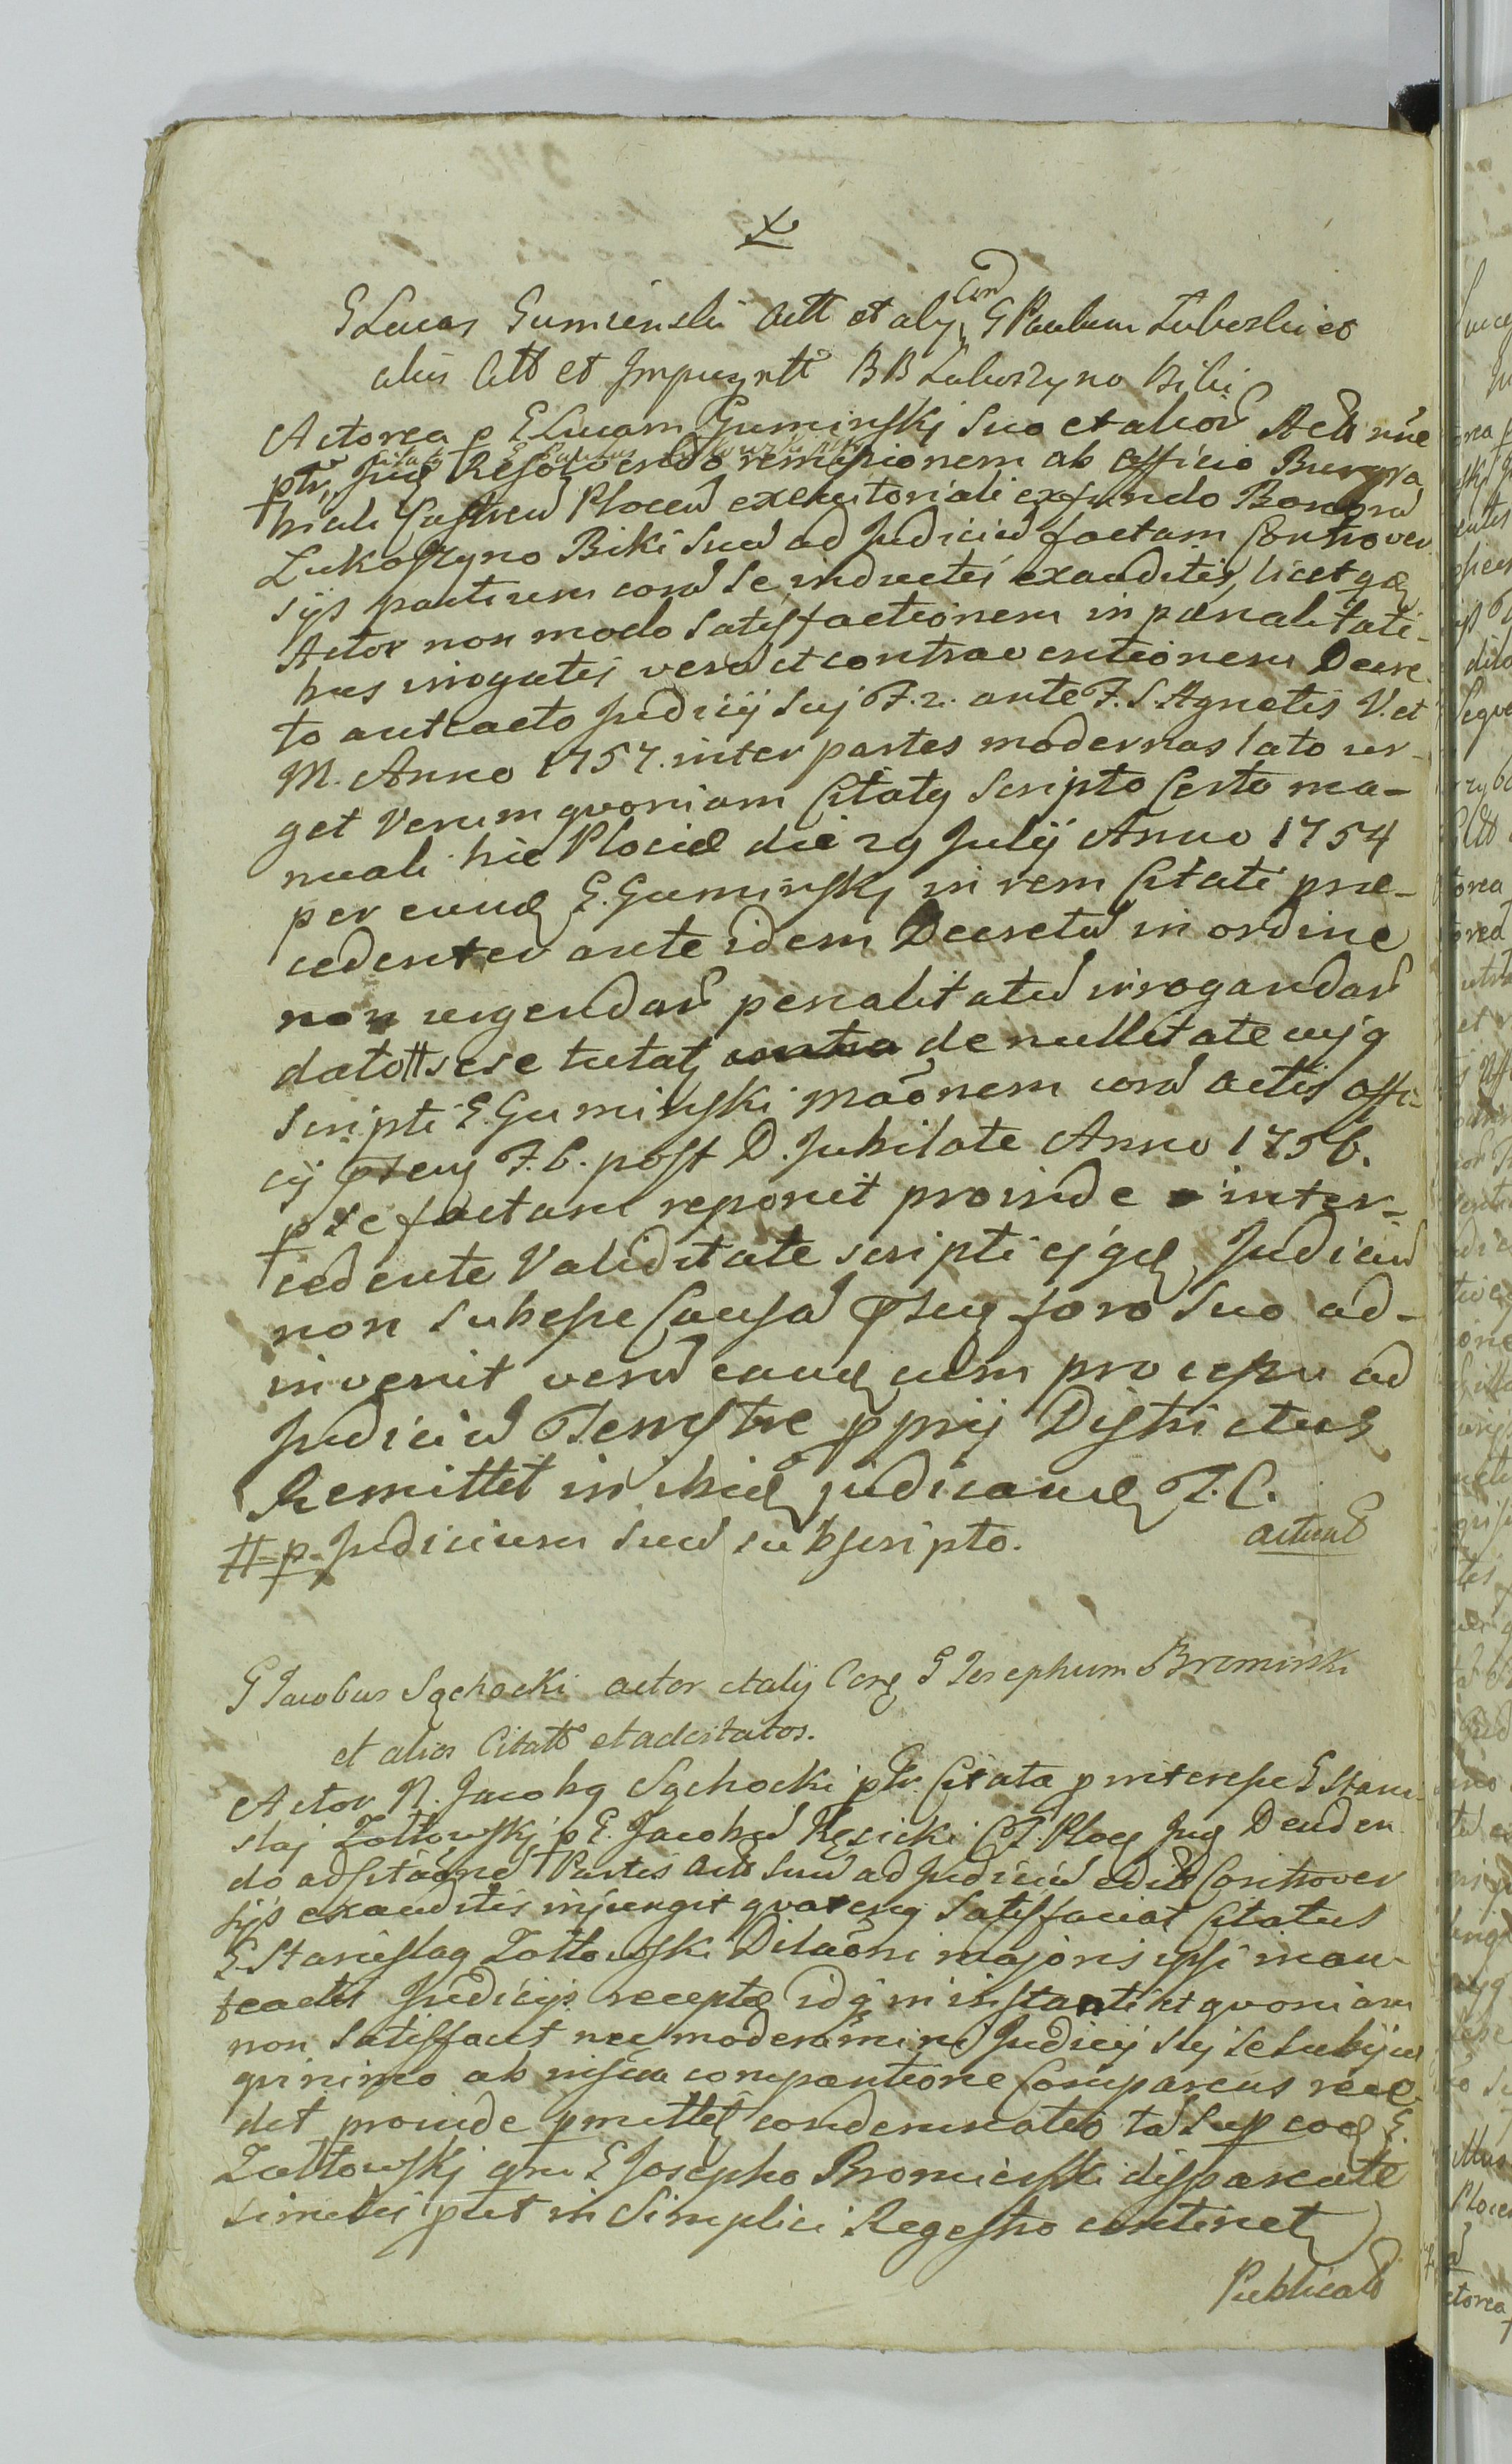 G Lucas Gumienski Actt et alij Con G Paulum Luboski et
alios Citt et Impugntt BB Lukoszyno Biki
Actorea p G Lucam Guminskj suo et alior Actt nne
ptr, Jud Resolvendo remissionem ab officio Burgra
biali Castren Plocen executoriali ex fundo Bonor
Lukoszyno Biki suu ad Judiciu factam Controver
sijs partium cora se inductis exauditis, licet qd
Actor non modo satisfactionem in pænalitati-
bus irrogatis veru et contraventionem Decre
to anteacto Judicij suj F. 2. ante F. S. Agnetis V. et
M. Anno 1757. inter partes modernas lato ur-
get Verum qvoniam Citatq scripto Certo ma-
nuali hic Plociæ die 29 Julij Anno 1754
per eund G. Guminskj in rem Citati præ-
cedenter ante idem Decretu in ordine
non urgendar penalitatu irrogandar
dato # sese tutat de nullitate cujq
scripti G. Guminski maõnem cora actis offi-
cij Tenq F. 6. post D. Jubilate Anno 1756.
p se factam reponit proinde inter-
cedente Validitate scripti ejqd Judiciu
non subesse Causa Psuq foro suo ad-
invenit veru eand cum processu ad
Judiciu Terrstre pprij Districtus
Remittet in ibid judicand T. C.
# p Judicium suu subscripto. actum
G Jacobus Sęchocki actor et alij Con G Josephum Bromirski
et alios Citatt et adcitatos.
Actor N. Jacobq Sęchocki ptr. Citata p interesse G Stani
slaj Zoltowskj p G. Jacobu Kęsicki CT. Ploc Jud Denden
do adcitaõne Partis Actt suu ad Judiciu edit Controver
sijs exauditis injungit qvatenq satisfaciat Citatus
G Stanislaq Zoltowski Dilaõni majoris ipsi in an-
teactis Judicijs receptæ idq in instanti et qvoniam
non satisfacit nec moderamini Judicij suj se subijcit
qvinimo ab comparitione Comparens rece-
det proinde pmittet condemnatio ta sup eod G.
Zoltowskj qm G Josepho Bromirski disparente
simili put in Simplici Regestro continet
Publicatt